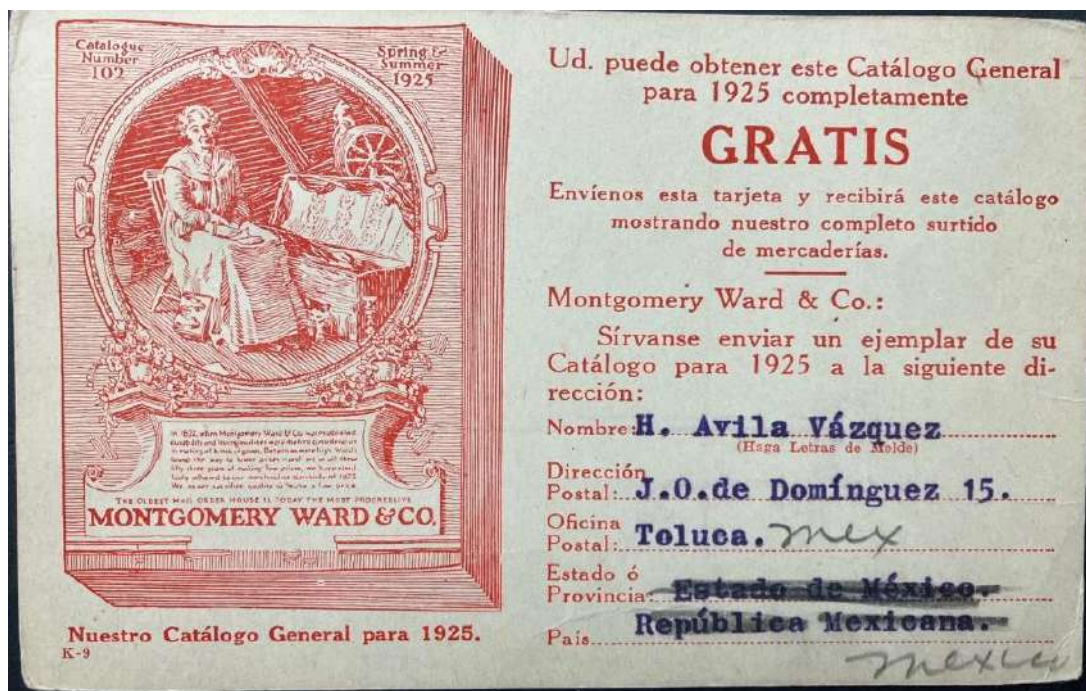 Catalogue
Number
102
Spring &
Summer
1925
THE OLDEST MAIL ORDER HOUSE IS TODAY THE MOST PROGRESSIVE
MONTGOMERY WARD & CO.
Nuestro Catálogo General para 1925.
K-9
Ud. puede obtener este Catálogo General
para 1925 completamente
GRATIS
Envíenos esta tarjeta y recibirá este catálogo
mostrando nuestro completo surtido
de mercaderías.
Montgomery Ward & Co.:
Sírvanse enviar un ejemplar de su
Catálogo para 1925 a la siguiente di-
rección:
Nombre: H. Avila Vázquez
(Haga Letras de Molde)
Dirección
Postal: J.O.de Domínguez 15.
Oficina
Postal: Toluca. Mex
Estado ó
Provincia: Estado de México.
País República Mexicana.
Mexico